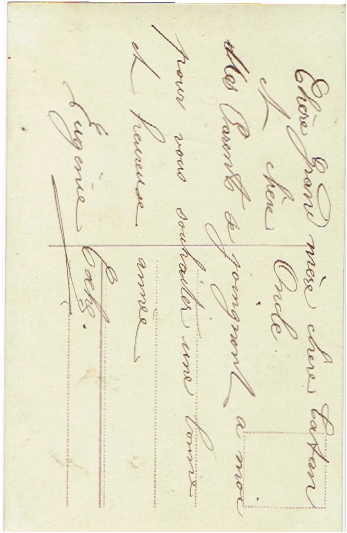 Chère grand mère chere Tatan
et chere Oncle
Mes Parent ce joingnent a moi
pour vous souhaiter une bonne
et heureuse année
Eugénie